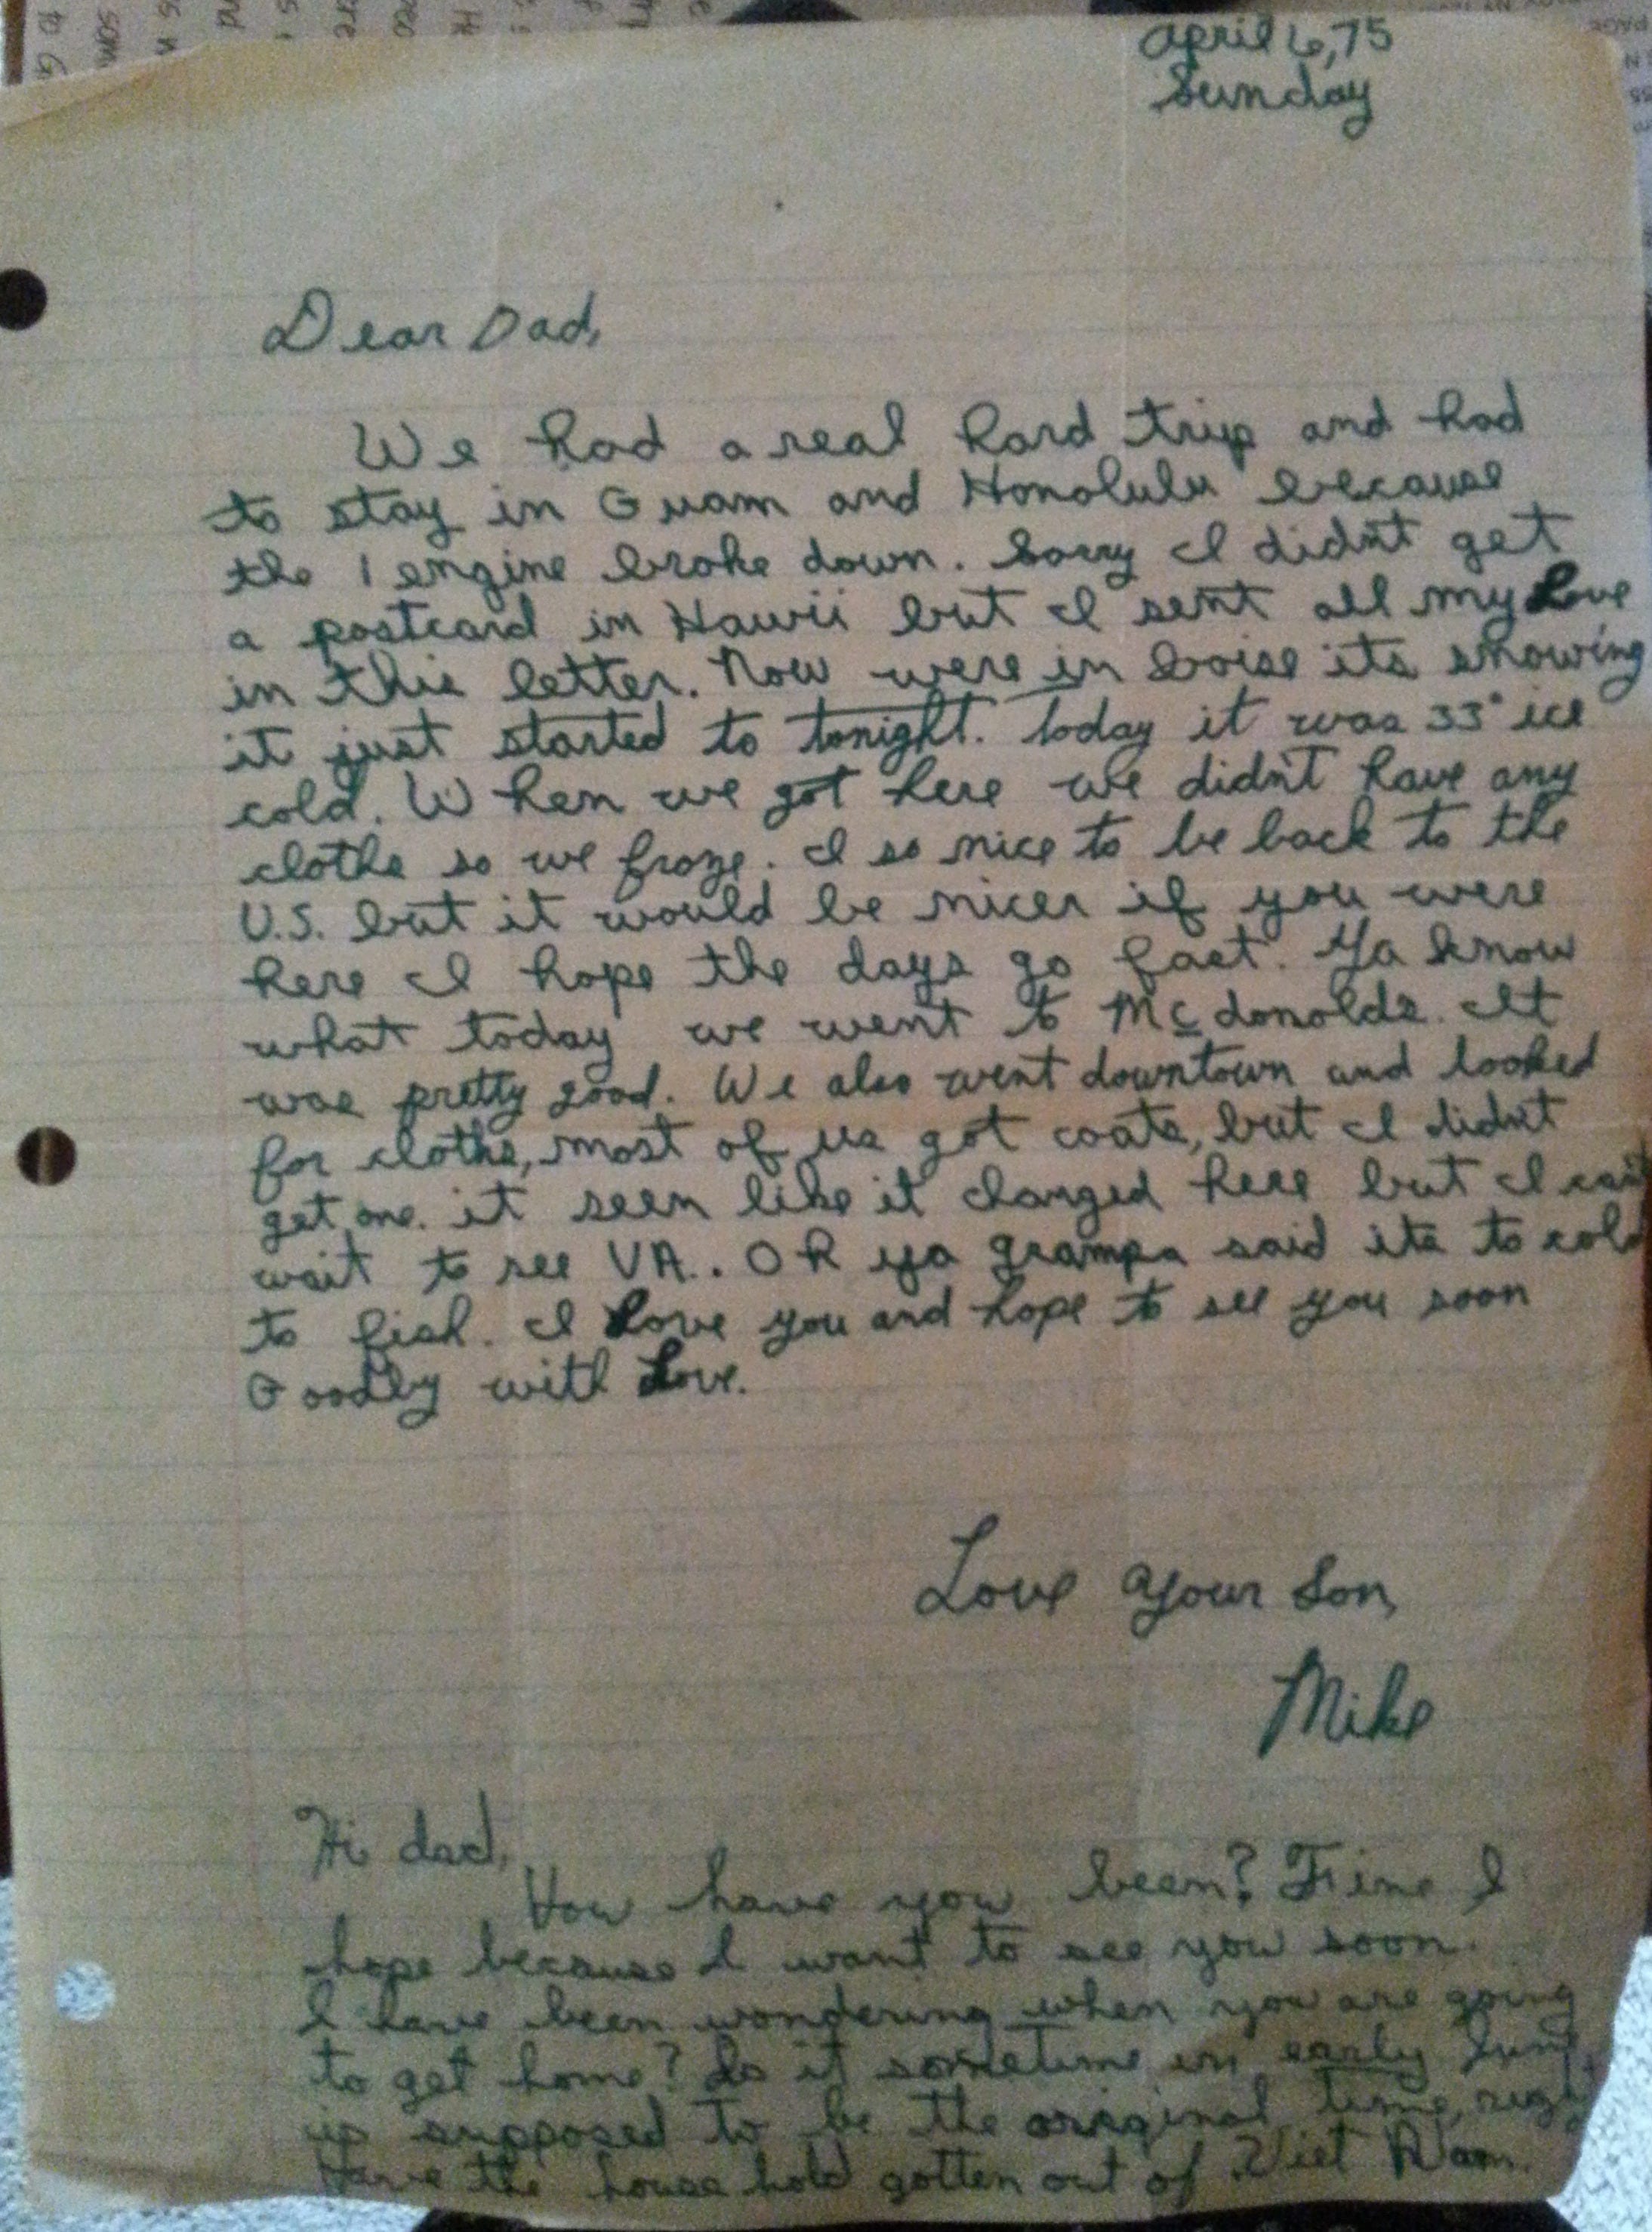 April 6, 75
Sunday
Dear Dad,
We had a real hard trip and had
to stay in Guam and Honolulu because
the 1 engine broke down. Sorry I didn't get
a postcard in Hawii but I sent all my Love
in this letter. Now were in Boise its snowing
it just started to tonight. Today it was 33° ice
cold. When we got here we didn't have any
clothe so we froze. I so nice to be back to the
U.S. but it would be nicer if you were
here I hope the days go fast. Ya know
what today we went to McDonalds. It
was pretty good. We also went downtown and looked
for clothe, most of us got coats, but I didn't
get one. it seem like it changed here but I can't
wait to see VA.. OR ya grampa said its to cold
to fish. I Love you and hope to see you soon
Goodby with Love.
Love your son,
Mike
Hi dad,
How have you been? Fine I
hope because I want to see you soon.
I have been wondering when you are going
to get home? Is it sometime in early June
is supposed to be the original time, right
Have the house hold gotten out of Viet Nam.